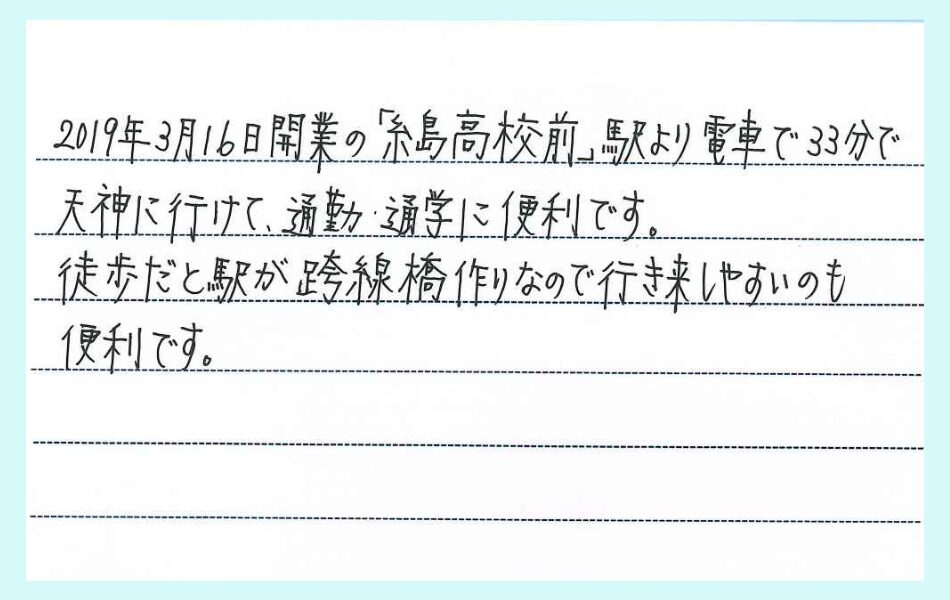 2019年3月16日開業の「糸島高校前」駅より電車で33分で
天神に行けて、通勤・通学に便利です。
徒歩だと駅が跨線橋作りなので行き来しやすいのも
便利です。